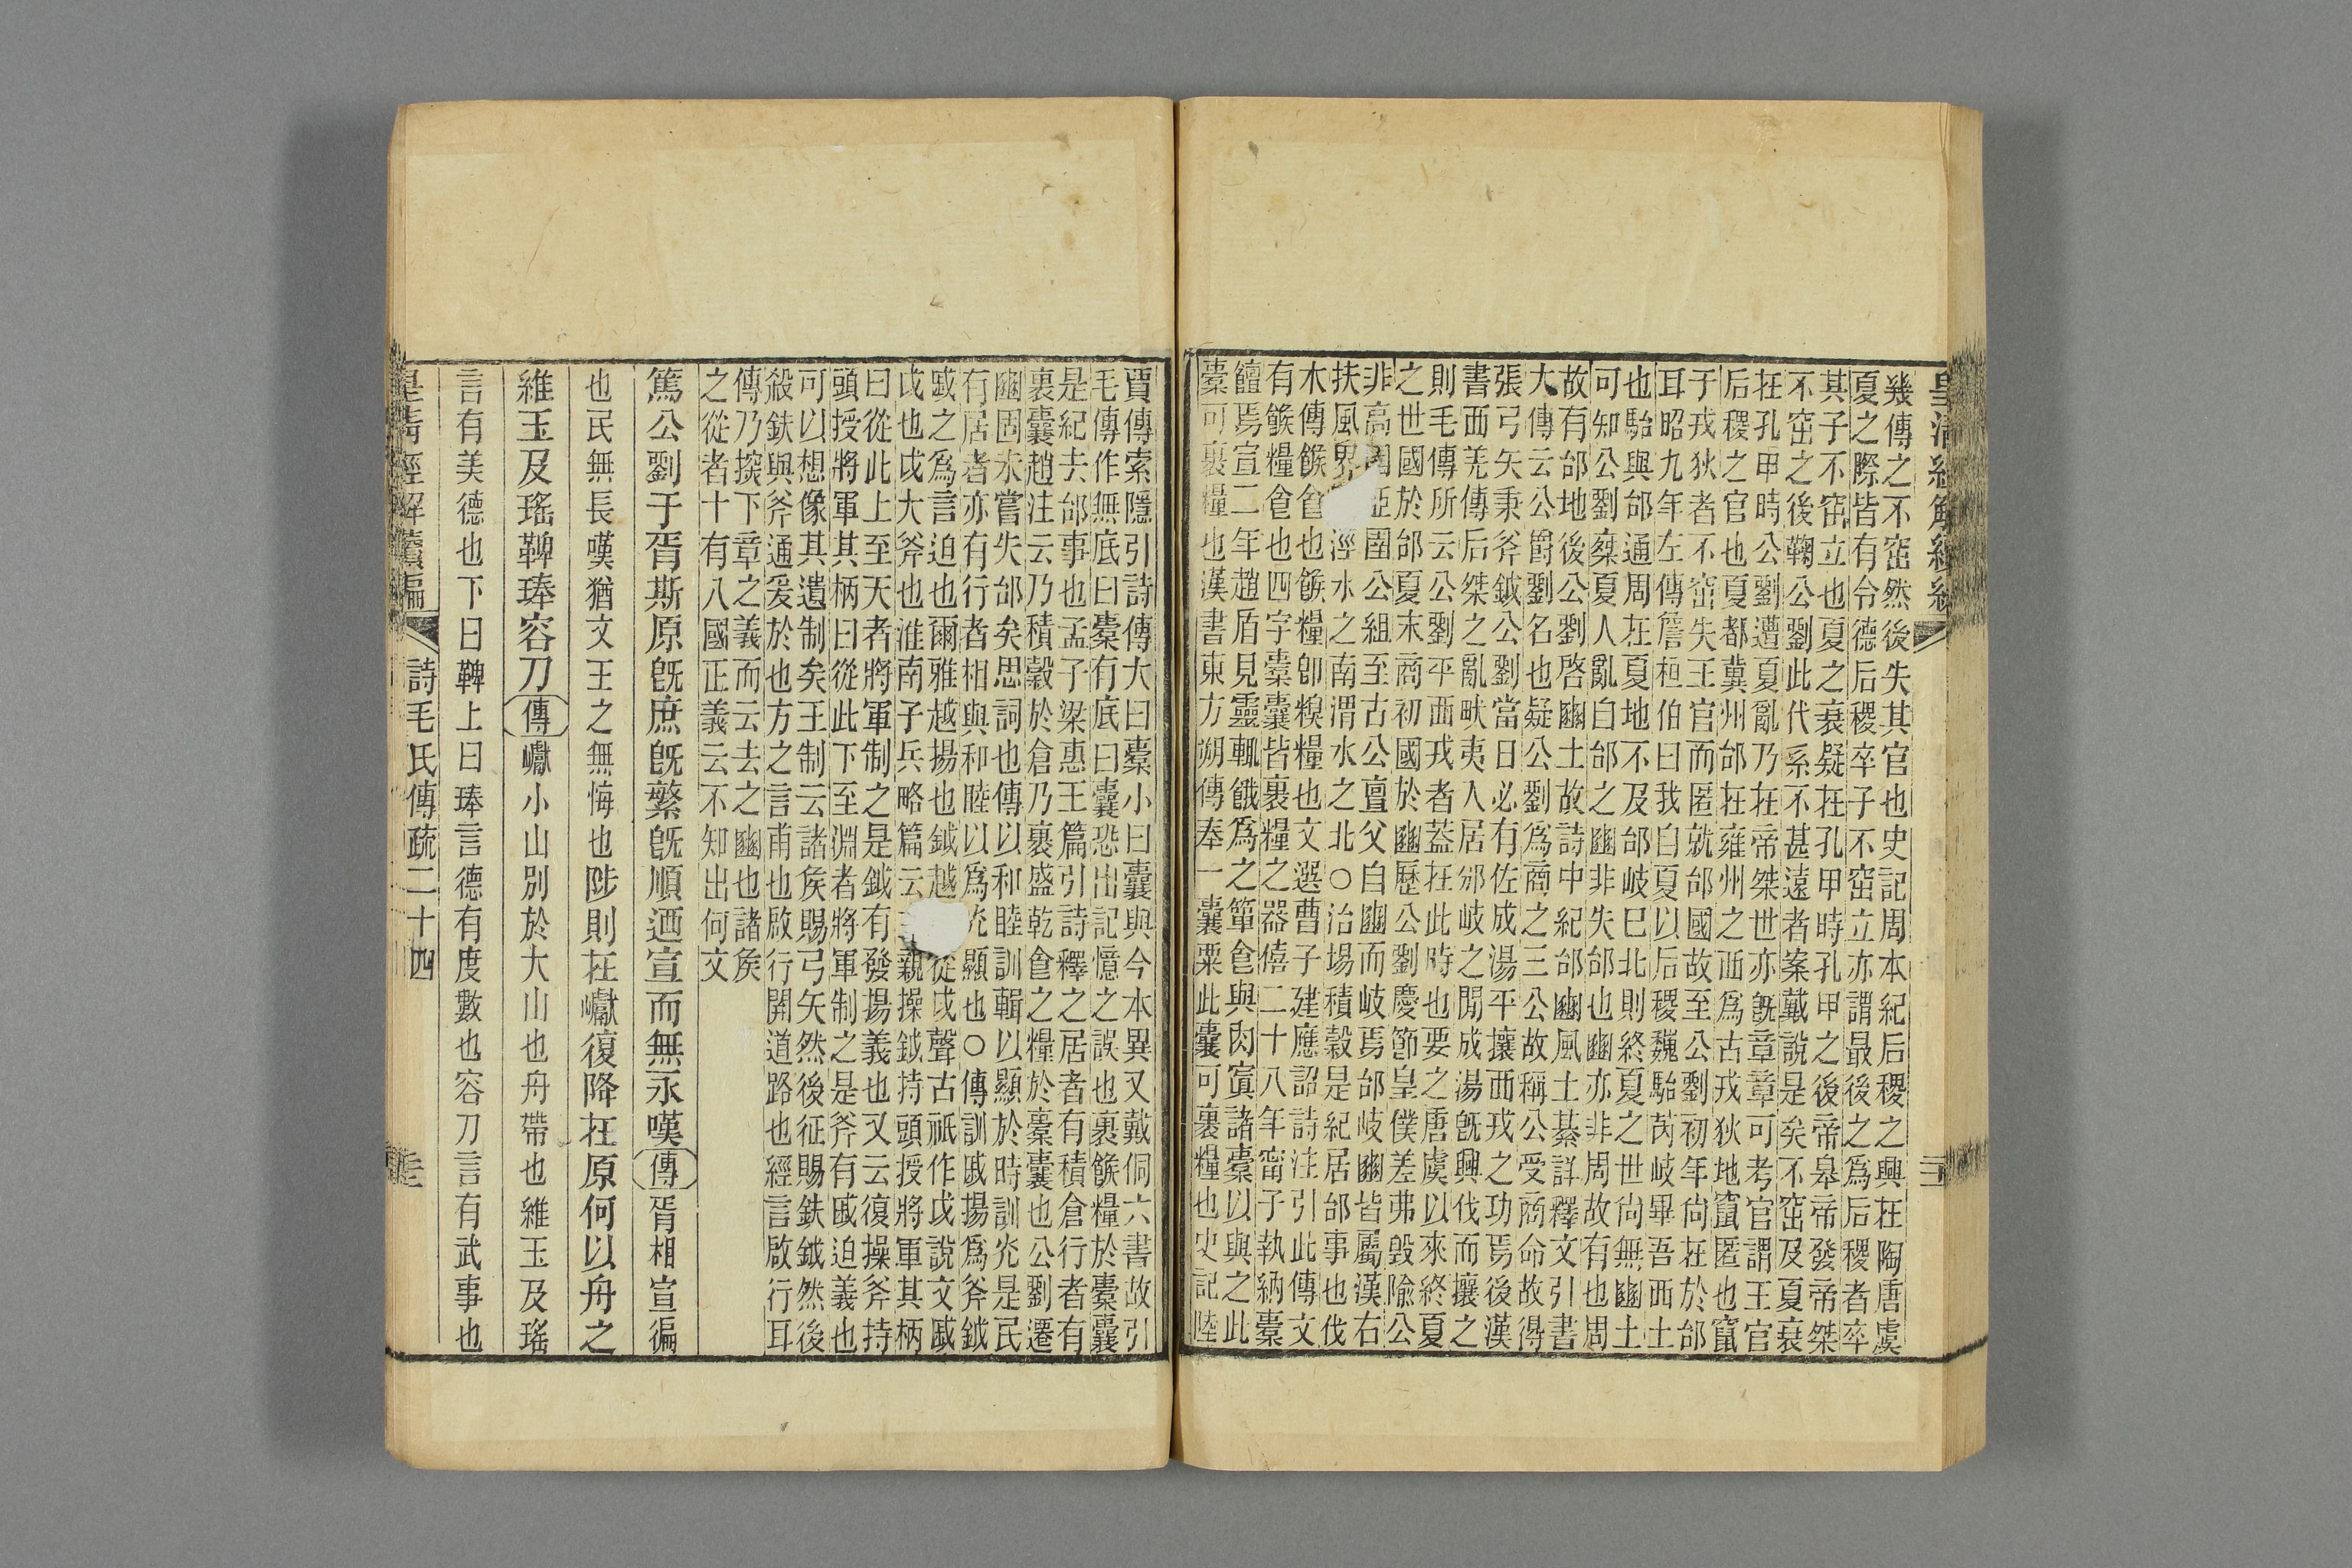 皇清經解續編
三
幾傳之不窋然後失其官也史記周本紀后稷之興在陶唐虞
夏之際皆有令德后稷卒子不窋立亦謂最後之爲后稷者卒
其子不窋立也夏之衰疑在孔甲時孔甲之後帝皋帝發帝桀
不窋之後鞠公劉此代系不甚遠者案戴說是矣不窋及夏衰
在孔甲時公劉遭夏亂乃在帝桀世亦旣章章可考官謂王官
后稷之官也夏都冀州邰在雍州之西爲古戎狄地竄匿也竄
于戎狄者不窋失王官而匿就邰國故至公劉初年尙在於邰
耳昭九年左傳詹桓伯曰我自夏以后稷魏駘芮岐畢吾西土
也駘與邰通周在夏地不及邰岐巳北則終夏之世尙無豳土
可知公劉棄夏人亂自邰之豳非失邰也豳亦非周故有也周
故有邰地後公劉啓豳土故詩中紀邰豳風土綦詳釋文引書
大傳云公爵劉名也疑公劉爲商之三公故稱公受商命故得
張弓矢秉斧鉞公劉當日必有佐成湯平攘西戎之功焉後漢
書西羌傳后桀之亂畎夷入居邠岐之閒成湯旣興伐而攘之
則毛傳所云公劉平西戎者葢在此時也要之唐虞以來終夏
之世國於邰夏末商初國於豳歷公劉慶節皇僕差弗毀隃公
非高圉亞圉公組至古公亶父自豳而岐焉邰岐豳皆屬漢右
扶風界涇水之南渭水之北○治場積穀是紀居邰事也伐
木傳餱食也餱糧卽糗糧也文選曹子建應詔詩注引此傳文
有餱糧食也四字橐囊皆裹糧之器僖二十八年甯子執納橐
饘焉宣二年趙盾見靈輒餓爲之簞食與肉寘諸橐以與之此
橐可裹糧也漢書東方朔傳奉一囊粟此囊可裹糧也史記陸
賈傳索隱引詩傳大曰橐小曰囊與今本異又戴侗六書故引
毛傳作無底曰橐有底曰囊恐出記憶之誤也裹餱糧於橐囊
是紀去邰事也孟子梁惠王篇引詩釋之居者有積倉行者有
裹囊趙注云乃積穀於倉乃裹盛乾食之糧於橐囊也公劉遷
豳固未嘗失邰矣思詞也傳以和睦訓輯以顯於時訓光是民
有居者亦有行者相與和睦以爲光顯也○傳訓戚揚爲斧鉞
戚之爲言迫也爾雅越揚也鉞越從戉聲古祇作戉說文戚
戉也戉大斧也淮南子兵略篇云親操鉞持頭授將軍其柄
曰從此上至天者將軍制之是鉞有發揚義也又云復操斧持
頭授將軍其柄曰從此下至淵者將軍制之是斧有戚迫義也
可以想像其遺制矣王制云諸矦賜弓矢然後征賜鈇鉞然後
殺鈇與斧通爰於也方之言甫也啟行開道路也經言啟行耳
傳乃探下章之義而云去之豳也諸矦
之從者十有八國正義云不知出何文
篤公劉于胥斯原旣庶旣繁旣順迺宣而無永嘆傳胥相宣徧
也民無長嘆猶文王之無悔也陟則在巘復降在原何以舟之
維玉及瑤鞞琫容刀傳巘小山別於大山也舟帶也維玉及瑤
言有美德也下曰鞞上曰琫言德有度數也容刀言有武事也
皇清經解續編
詩毛氏傳疏二十四